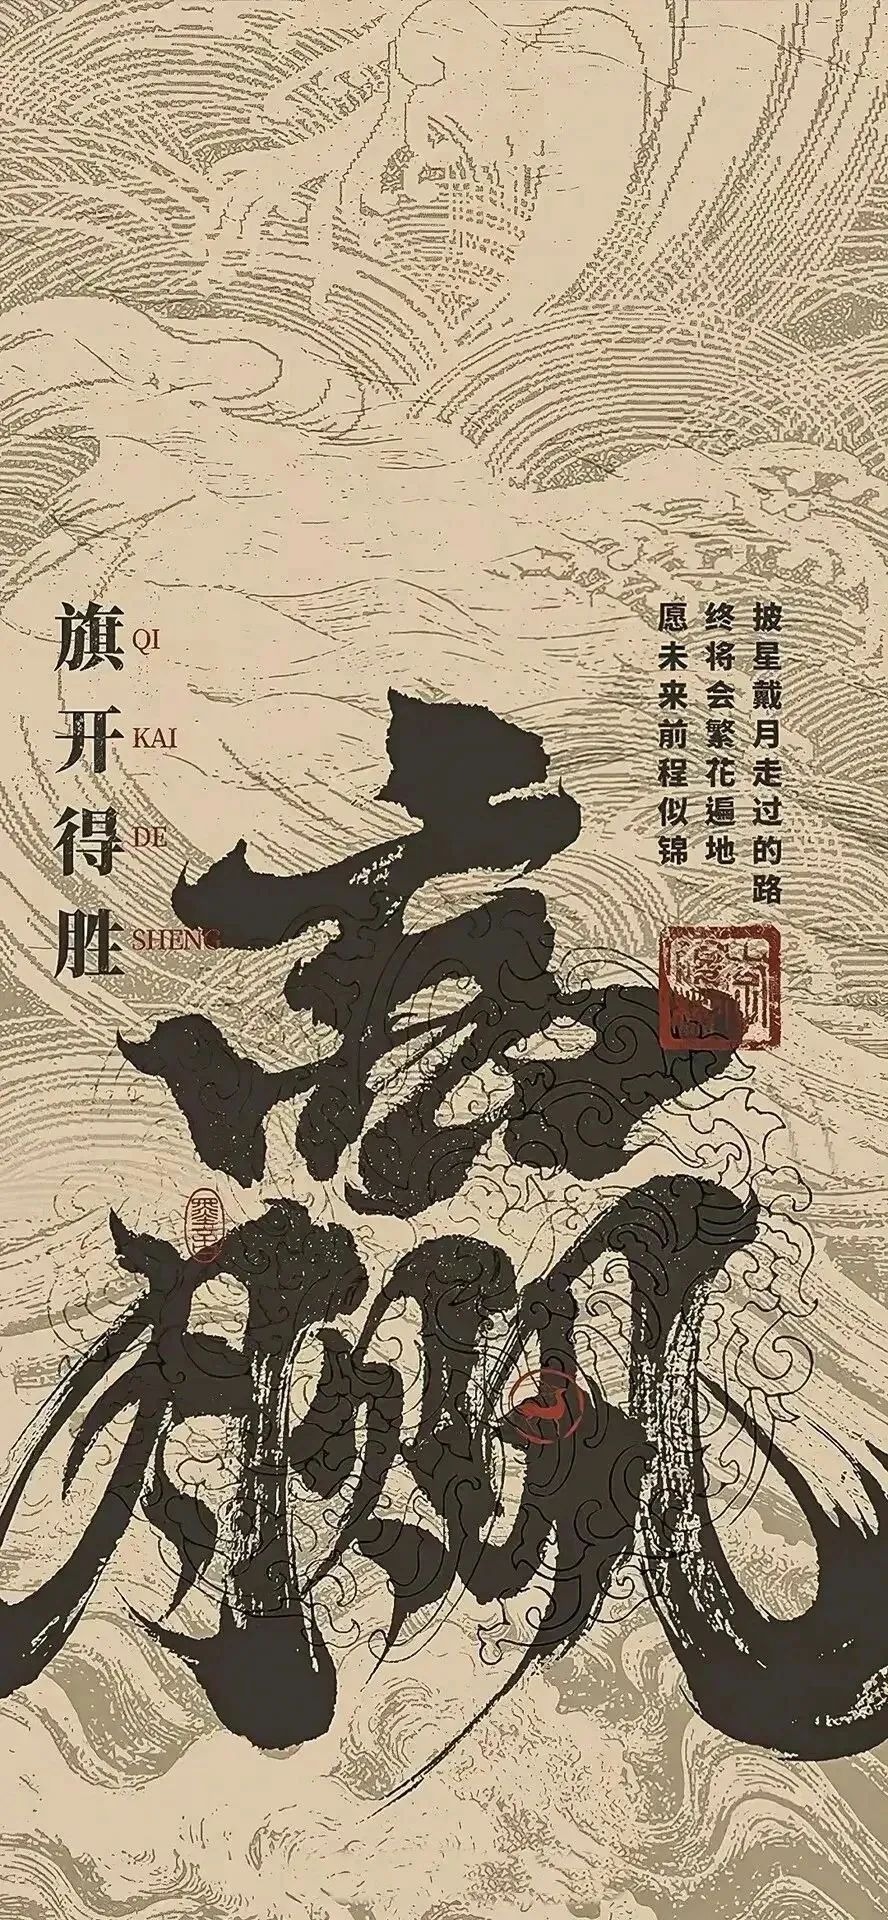 旗开得胜
QI
KAI
DE
SHENG
披星戴月走过的路
终将会繁花遍地
愿未来前程似锦